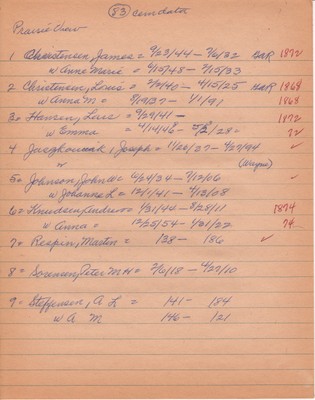 83 cemdator
Prairie View
1 Christensen, James = 9/23/44 - 7/6/32 BAR 1872
w Anne Marie = 6/15/48 - 2/15/33
2 Christensen, Louis = 2/7/40 - 4/15/25 BAR 1868
w Anna M = 9/19/37 - 1/1/91 1868
3 Hansen, Lars = 9/29/41 - 1872
w Emma = 4/14/46 - 5/2/28 = 72
4 Joseph = 1/26/27 - 4/27/94 ✓
w (Wayne)
5 Johnson, John = 6/24/34 - 7/12/06 ✓
w Johanna L = 12/1/41 - 7/12/08
6 = Knudsen, = 1/31/44 - 3/28/11 1874
w Anna = 12/25/54 - 1/21/22 74
7 Raspin, Martin = 128 - 186 ✓
8 = Sorensen, Peter M H = 2/6/18 - 4/27/10
9 = Steffensen, A L = 141 - 184
w A. M 146 - 121